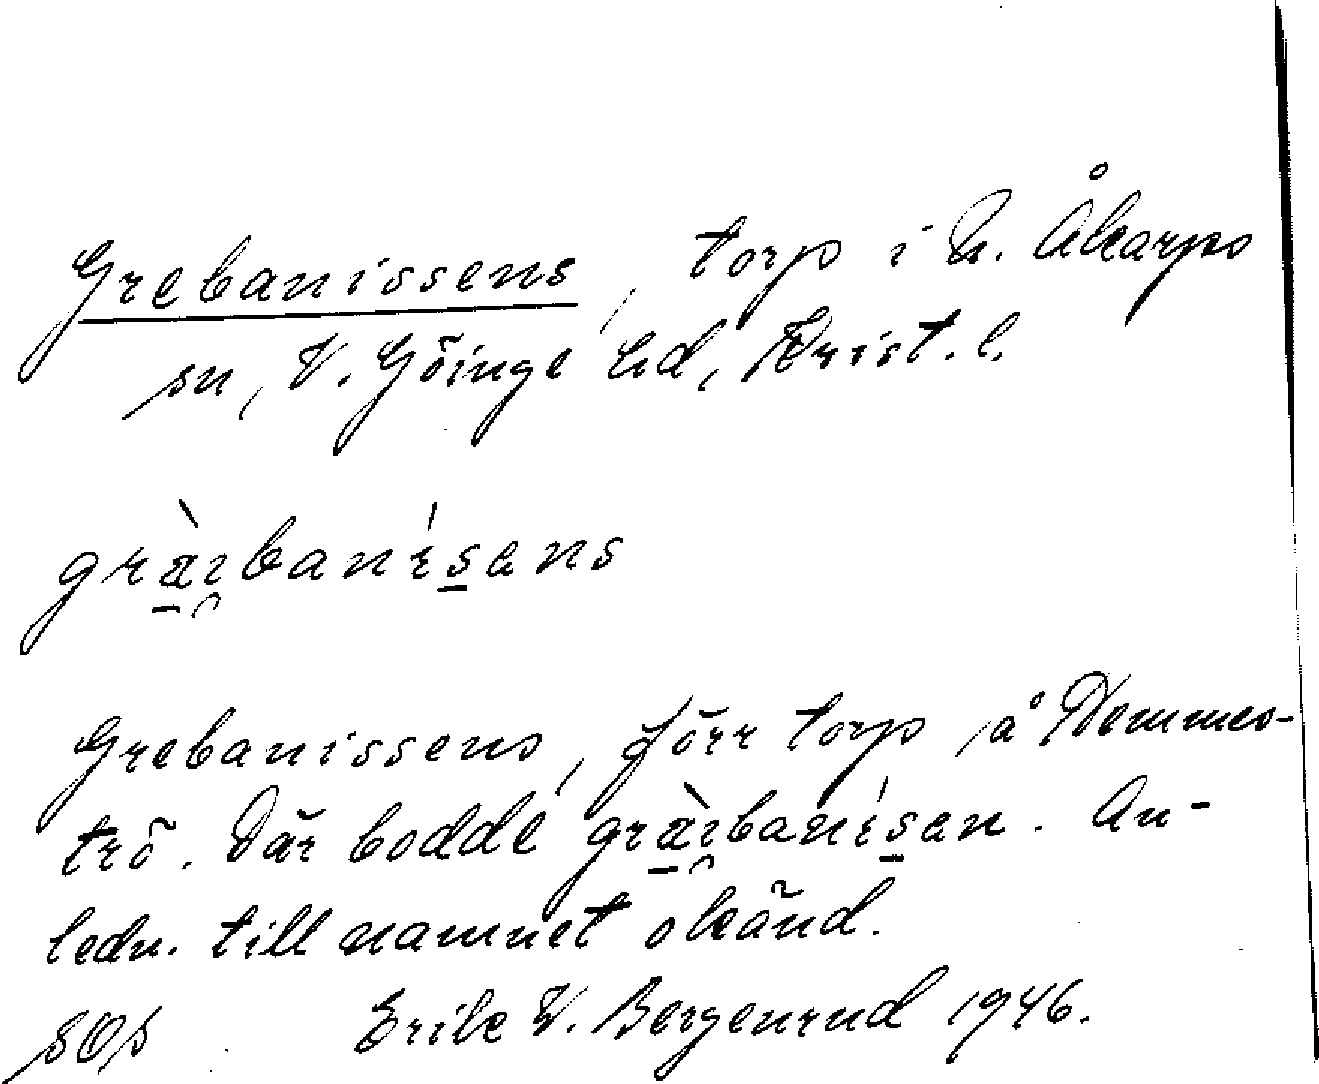 Grebanissens, torp i N. Åkarps
sn, V. Göinge hd, Krist. l.
gràɪ̯banísans
Grebanissens, förr torp på Hemmes-
trö. Där bodde gràɪ̯banísan. An-
ledn. till namnet okänd.
SOS Erik V. Bergenrud 1946.